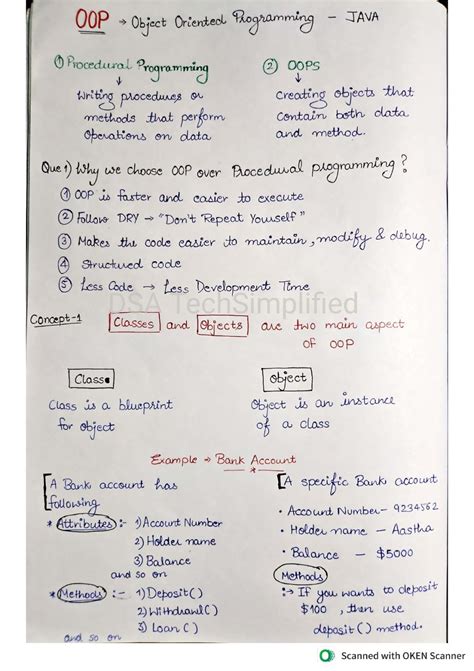 OOP → Object Oriented Programming - JAVA
① Procedural Programming
↓
Writing procedures or
methods that perform
Operations on data
② OOPS
↓
Creating objects that
contain both data
and method.
Que 1) Why we choose OOP over Procedural programming?
① OOP is faster and easier to execute
② Follow DRY → "Don't Repeat Yourself"
③ Makes the code easier to maintain, modify & debug.
④ Structured code
⑤ Less Code → Less Development Time
DSA TechSimplified
Concept-1 Classes and Objects are two main aspect
of OOP
Class
Class is a blueprint
for object
Object
Object is an instance
of a class
Example → Bank Account
A Bank account has
following
* Attributes :- 1) Account Number
2) Holder name
3) Balance
and so on
* Methods :- 1) Deposit()
2) Withdrawl()
3) Loan()
and so on
A specific Bank account
• Account Number - 9234562
• Holder name - Aastha
• Balance - $5000
Methods
:→ If you wants to deposit
$100, then use
deposit() method.
Scanned with OKEN Scanner